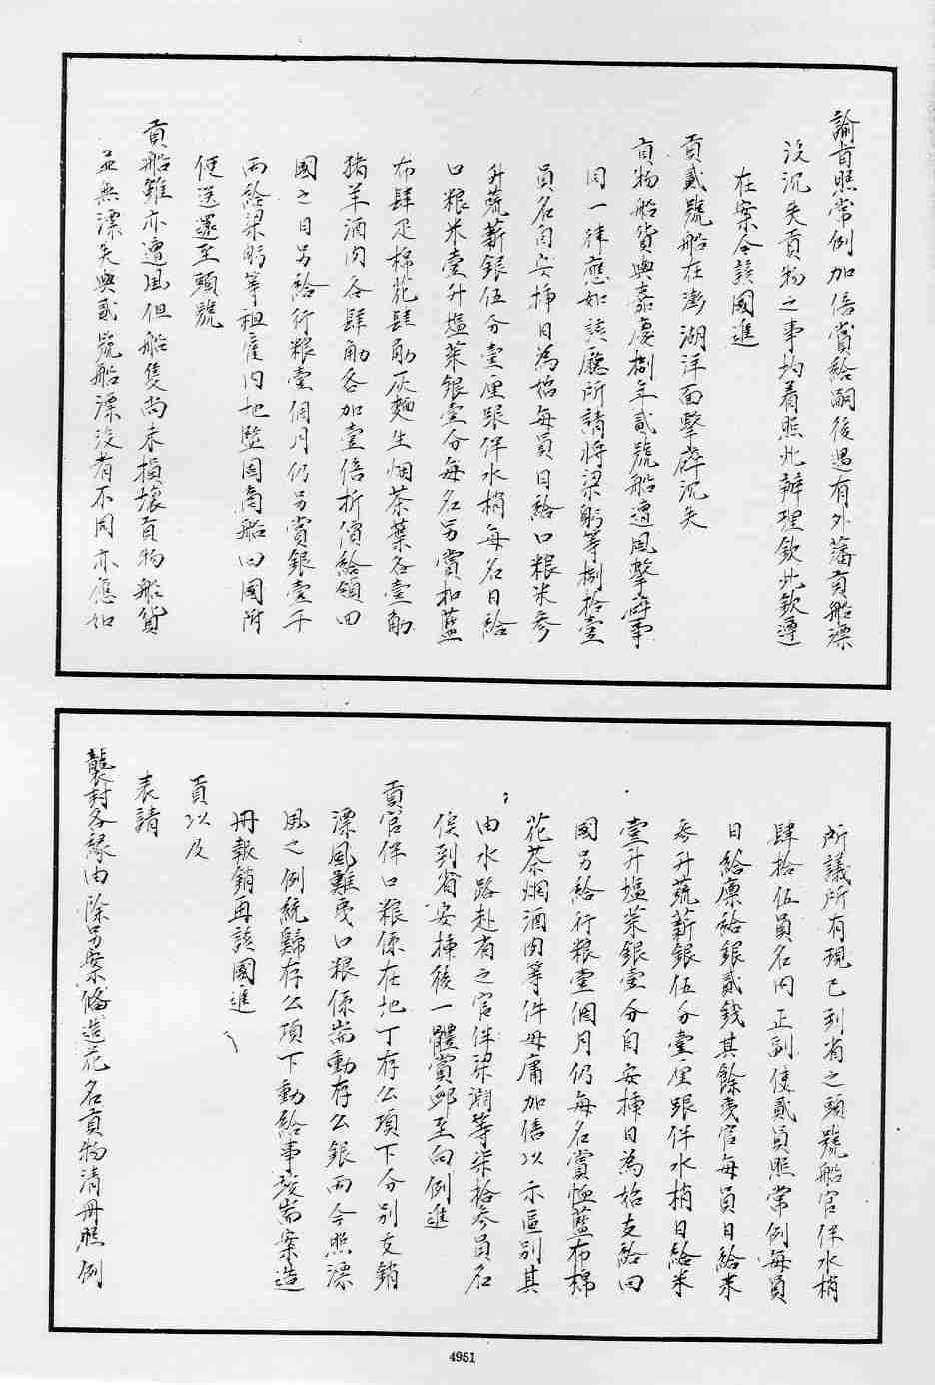 諭旨照常例加倍賞給嗣後遇有外藩貢船漂
沒沉失貢物之事均着照此辦理欽此欽遵
在案今該國進
貢貳號船在澎湖洋面擊碎沉失
貢物船貨與嘉慶捌年貳號船遭風擊碎事
同一律應如該廳所請將梁躬等捌拾壹
員名自安揷日為始每員日給口粮米參
升蔬薪銀伍分壹厘跟伴水梢每名日給
口粮米壹升塩菜銀壹分每名另賞和藍
布肆疋棉花肆觔灰麵生烟茶葉各壹觔
猪羊酒肉各肆觔各加壹倍折價給領回
國之日另給行粮壹個月仍另賞銀壹千
兩給梁躬等租雇內地監固商船回國附
便送還至頭號
貢船雖亦遭風但船隻尚未損壞貢物船貨
並無漂失與貳號船漂沒者不同亦應如
所議所有現已到省之頭號船官伴水梢
肆拾伍員名內正副使貳員照常例每員
日給廪給銀貳钱其餘夷官每員日給米
參升蔬薪銀伍分壹厘跟伴水梢日給米
壹升塩菜銀壹分自安揷日為始支給回
國另給行粮壹個月仍每名賞恤藍布棉
花茶烟酒肉等件毋庸加倍以示區別其
由水路赴省之官伴梁淵等柒拾參員名
俟到省安揷後一體賞卹至向例進
貢官伴口粮係在地丁存公項下分別支銷
漂風難夷口粮係耑動存公銀兩今照漂
風之例統歸存公項下動給事竣耑案造
冊報銷再該國進
貢以及
表請
襲封各緣由除另案俻造花名貢物清冊照例
4951